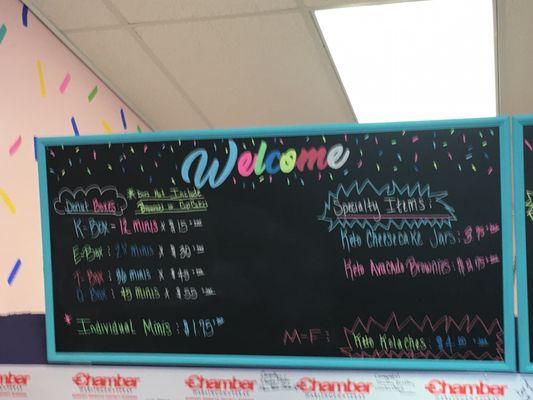 Welcome
Donut Boxes
*Does Not Include
Brownies or CupCakes
K-Box = 12 minis * $15
E-Box : 24 minis * $30
T-Box : 36 minis * $45
O Box : 45 minis * $55
* Individual Minis : $1.75
Specialty Items :
Keto Cheesecake Jars :
Keto Avocado Brownies :
M-F :
Keto Kolaches :
Chamber
Chamber
Chamber
Chamber